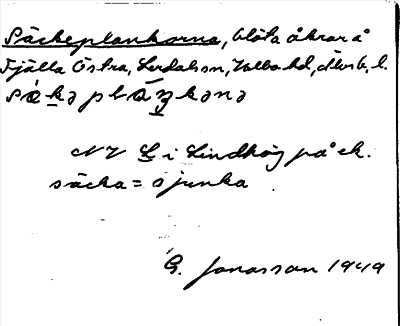 Säckeplankorna, blöta åkrar å
Fjälla Östra, Lerdalson, Valbo hd, Älvsb. l.
NV L i Lindhög på ek.
säcka = sjunka
G. Jonasson 1949